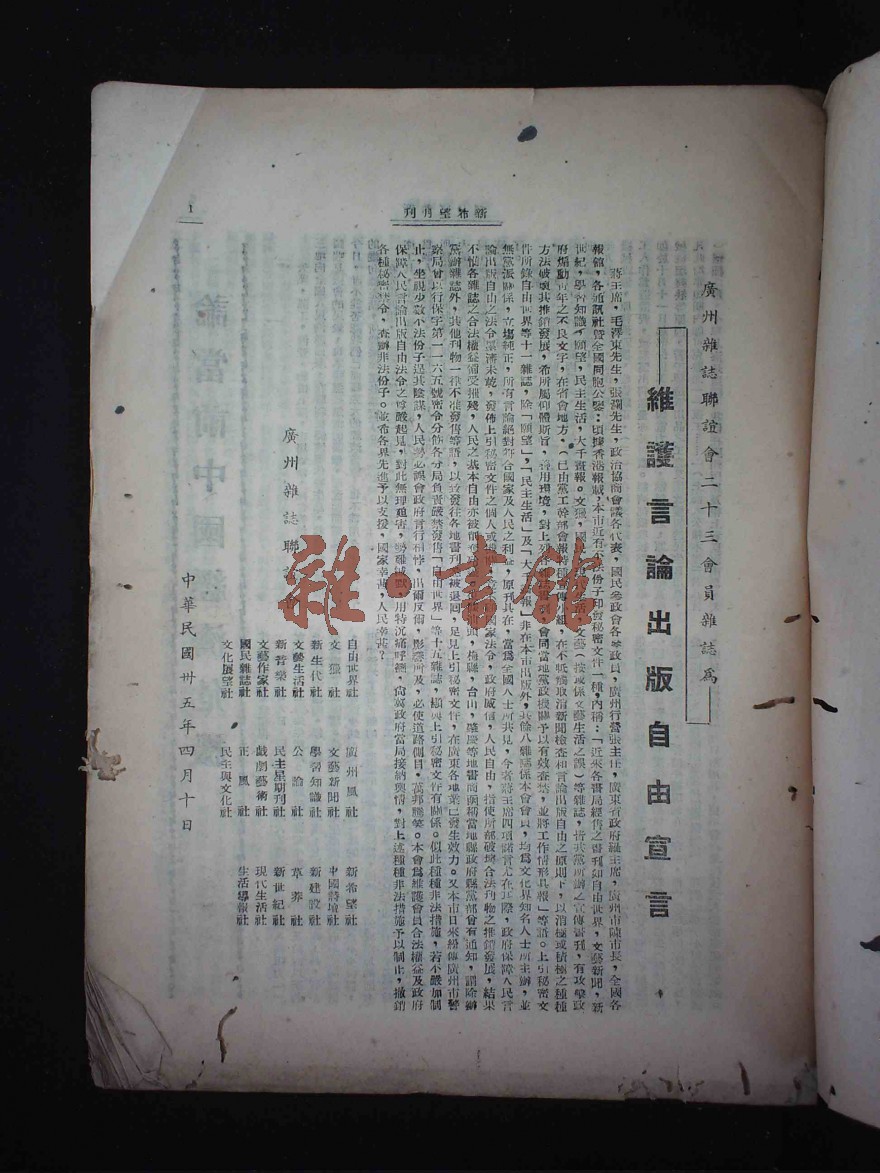 新希望月刊
1
廣州雜誌聯誼會二十三會員雜誌爲
維護言論出版自由宣言
蔣主席,毛澤東先生,張瀾先生,政治協商會議各代表,國民參政會各參政員,廣州行營張主任,廣東省政府羅主席,廣州市陳市長,全國各
報館,各通訊社曁全國同胞公鑒:頃據香港報載,本市近有不法份子印製秘密文件一種,內稱:「近來各書局經售之書刊如自由世界,文藝新聞,新
世紀,學習知識,願望,民主生活,大千畫報。文獵,國民,文藝(按或係文藝生活之誤)等雜誌,皆共黨所辦之宣傳書刊,有攻擊政
府煽動青年之不良文字,在省會地方,(已由黨工幹部會報特種宣傳小組,在不牴觸取消新聞檢查和言論出版自由之原則下,以消極或積極之種種
方法破壞其推銷發展,希所屬仰體斯旨,善用環境,對上列各雜誌會同當地黨政機關予以有效查禁,並將工作情形具報」等語。上引秘密文
件所錄自由世界等十一雜誌,除「願望」,「民主生活」及「大千畫報」非在本市出版外,其餘八雜誌係本會會員,均爲文化界知名人士所主辦,並
無黨派關係,立場純正,所有言論絕對符合國家及人民之利益,原刊具在,當爲全國人士所共見,今者蔣主席四項諾言尤在耳際,政府保障人民言
論出版自由之法令墨瀋未乾,發佈上引秘密文件之個人或機關國家法令,政府威信,人民自由,指使所部破壞合法刊物之推銷發展,結果
不惟各雜誌之合法權益備受摧殘,人民之基本自由亦被剝奪汕頭,梅縣,台山,肇慶等地書商須稱當地縣政府縣黨部曾有通知,謂除辦
黨辦雜誌外,其他刊物一律不准發售等語,以致發往各地書刊被退回,足見上引秘密文件,在廣東各地業已發生效力。又本市日來紛傳廣州市警
察局曾以行保字第一一六五號密令分飭各分局負責嚴禁發售「自由世界」等十五雜誌,顯與上引秘密文件有關係。似此種種非法措施,若不嚴加制
止,坐視少數不法份子逞其陰謀,人民勢必誤會政府言行相悖,出爾反爾,影響所及,必使道路側目,萬邦騰笑。本會爲維護會員合法權益及政府
保障人民言論出版自由法令之尊嚴起見,對此無理迫害,勢難緘默,用特沉痛呼籲,尙冀政府當局接納輿情,對上述種種非法措施予以制止,撤銷
各種秘密禁令,查辦非法份子。並希各界先進予以支援,國家幸甚,人民幸甚?
廣州雜誌聯誼會
自由世界社 廣州風社 新希望社
文獵社 文藝新聞社 中國詩壇社
新生代社 學習知識社 新建設社
文藝生活社 公論社 草莽社
新音樂社 民主星期刊社 新世紀社
文藝作家社 戲劇藝術社 現代生活社
國民雜誌社 正風社 生活導報社
文化展望社 民主與文化社
中華民國卅五年四月十日
雜·書館